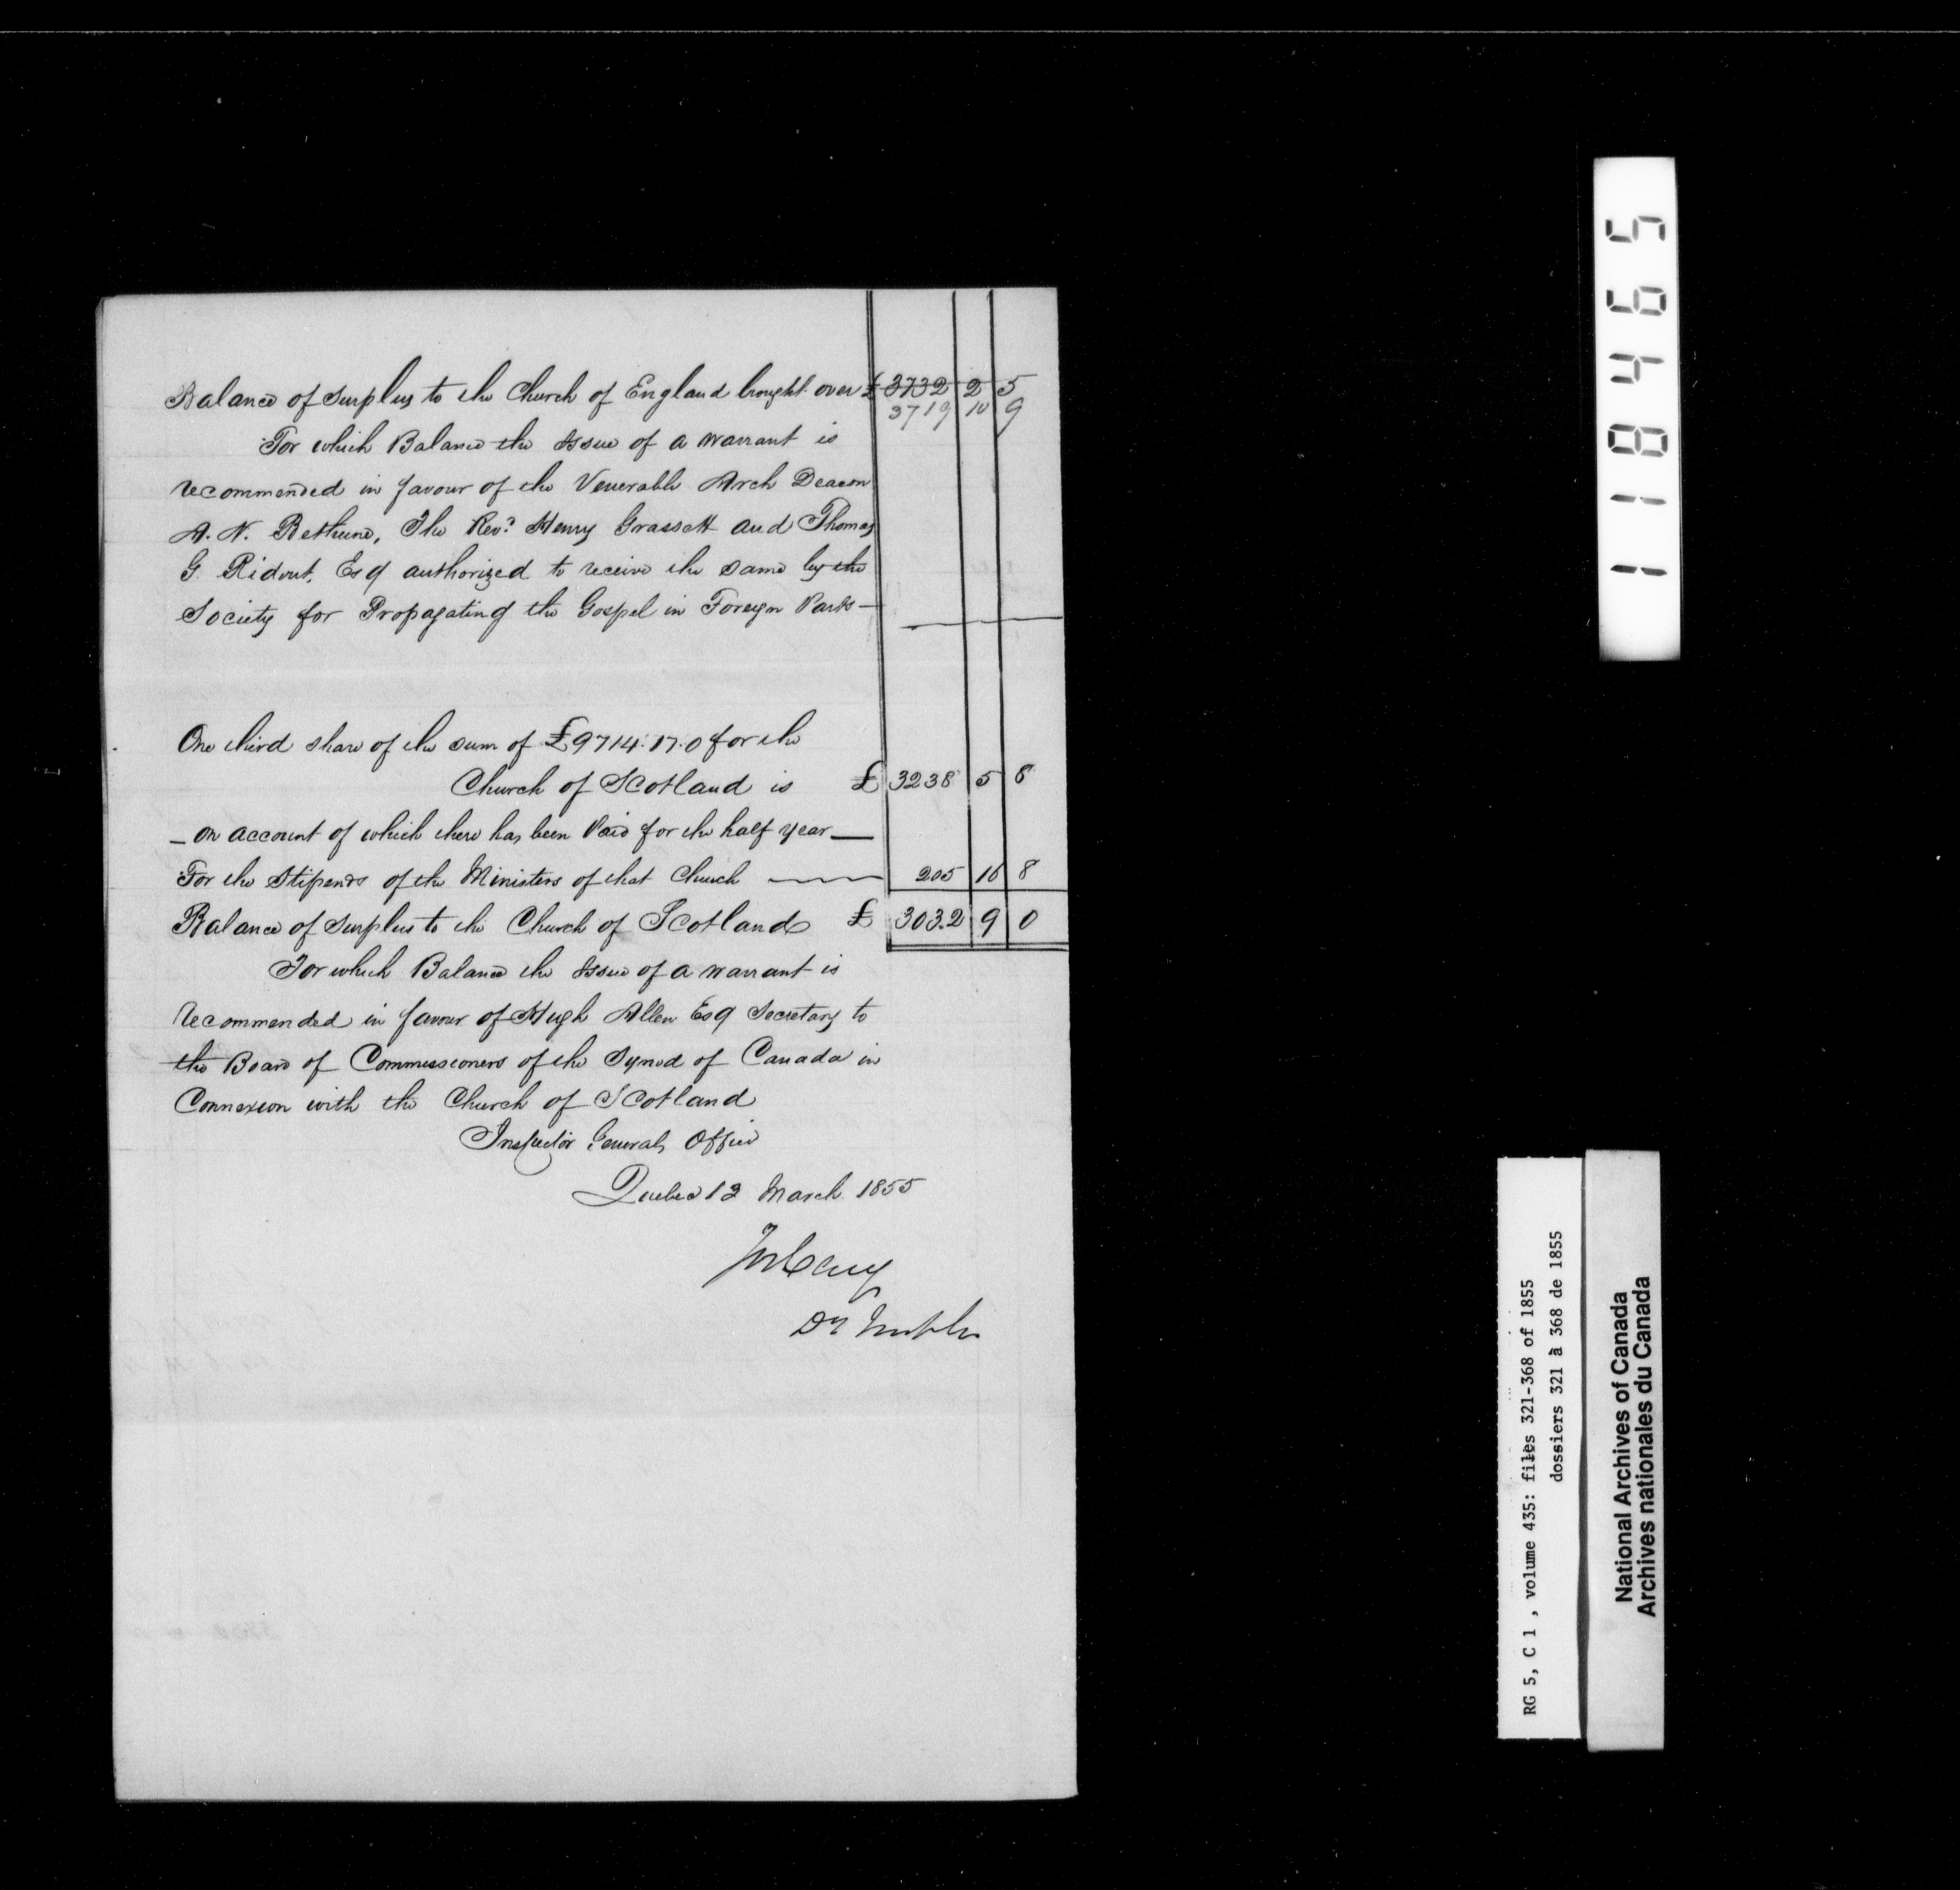 Balance of Surplus to the Church of England brought over £ 3732 2 5
3719 10 9
For which Balance the Issue of a warrant is
recommended in favour of the Venerable Arch Deacon
A. N. Bethune, The Revd Henry Grassett and Thomas
G. Ridout, Esq authorized to receive the same by the
Society for Propagating the Gospel in Foreign Parts —
One third share of the sum of £9714.17.0 for the
Church of Scotland is £ 3238 5 8
— On account of which there has been Paid for the half year —
For the Stipends of the Ministers of that Church — 205 16 8
Balance of Surplus to the Church of Scotland £ 3032 9 0
For which Balance the Issue of a warrant is
recommended in favour of Hugh Allen Esq Secretary to
the Board of Commissioners of the Synod of Canada in
Connexion with the Church of Scotland
Inspector Generals Office
Quebec 12 March 1855
Jos Cary
118465
RG 5, C 1 , volume 435: files 321-368 of 1855
dossiers 321 à 368 de 1855
National Archives of Canada
Archives nationales du Canada